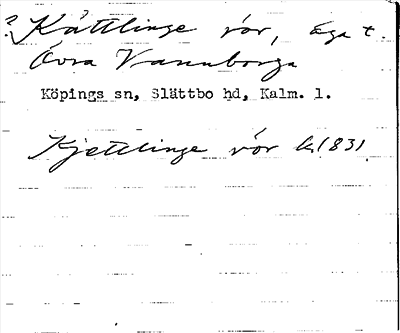 ? Kättlinge rör, äga t.
Övra Vannborga
Köpings sn, Slättbo hd, Kalm. l.
Kjettlinge rör k 1831